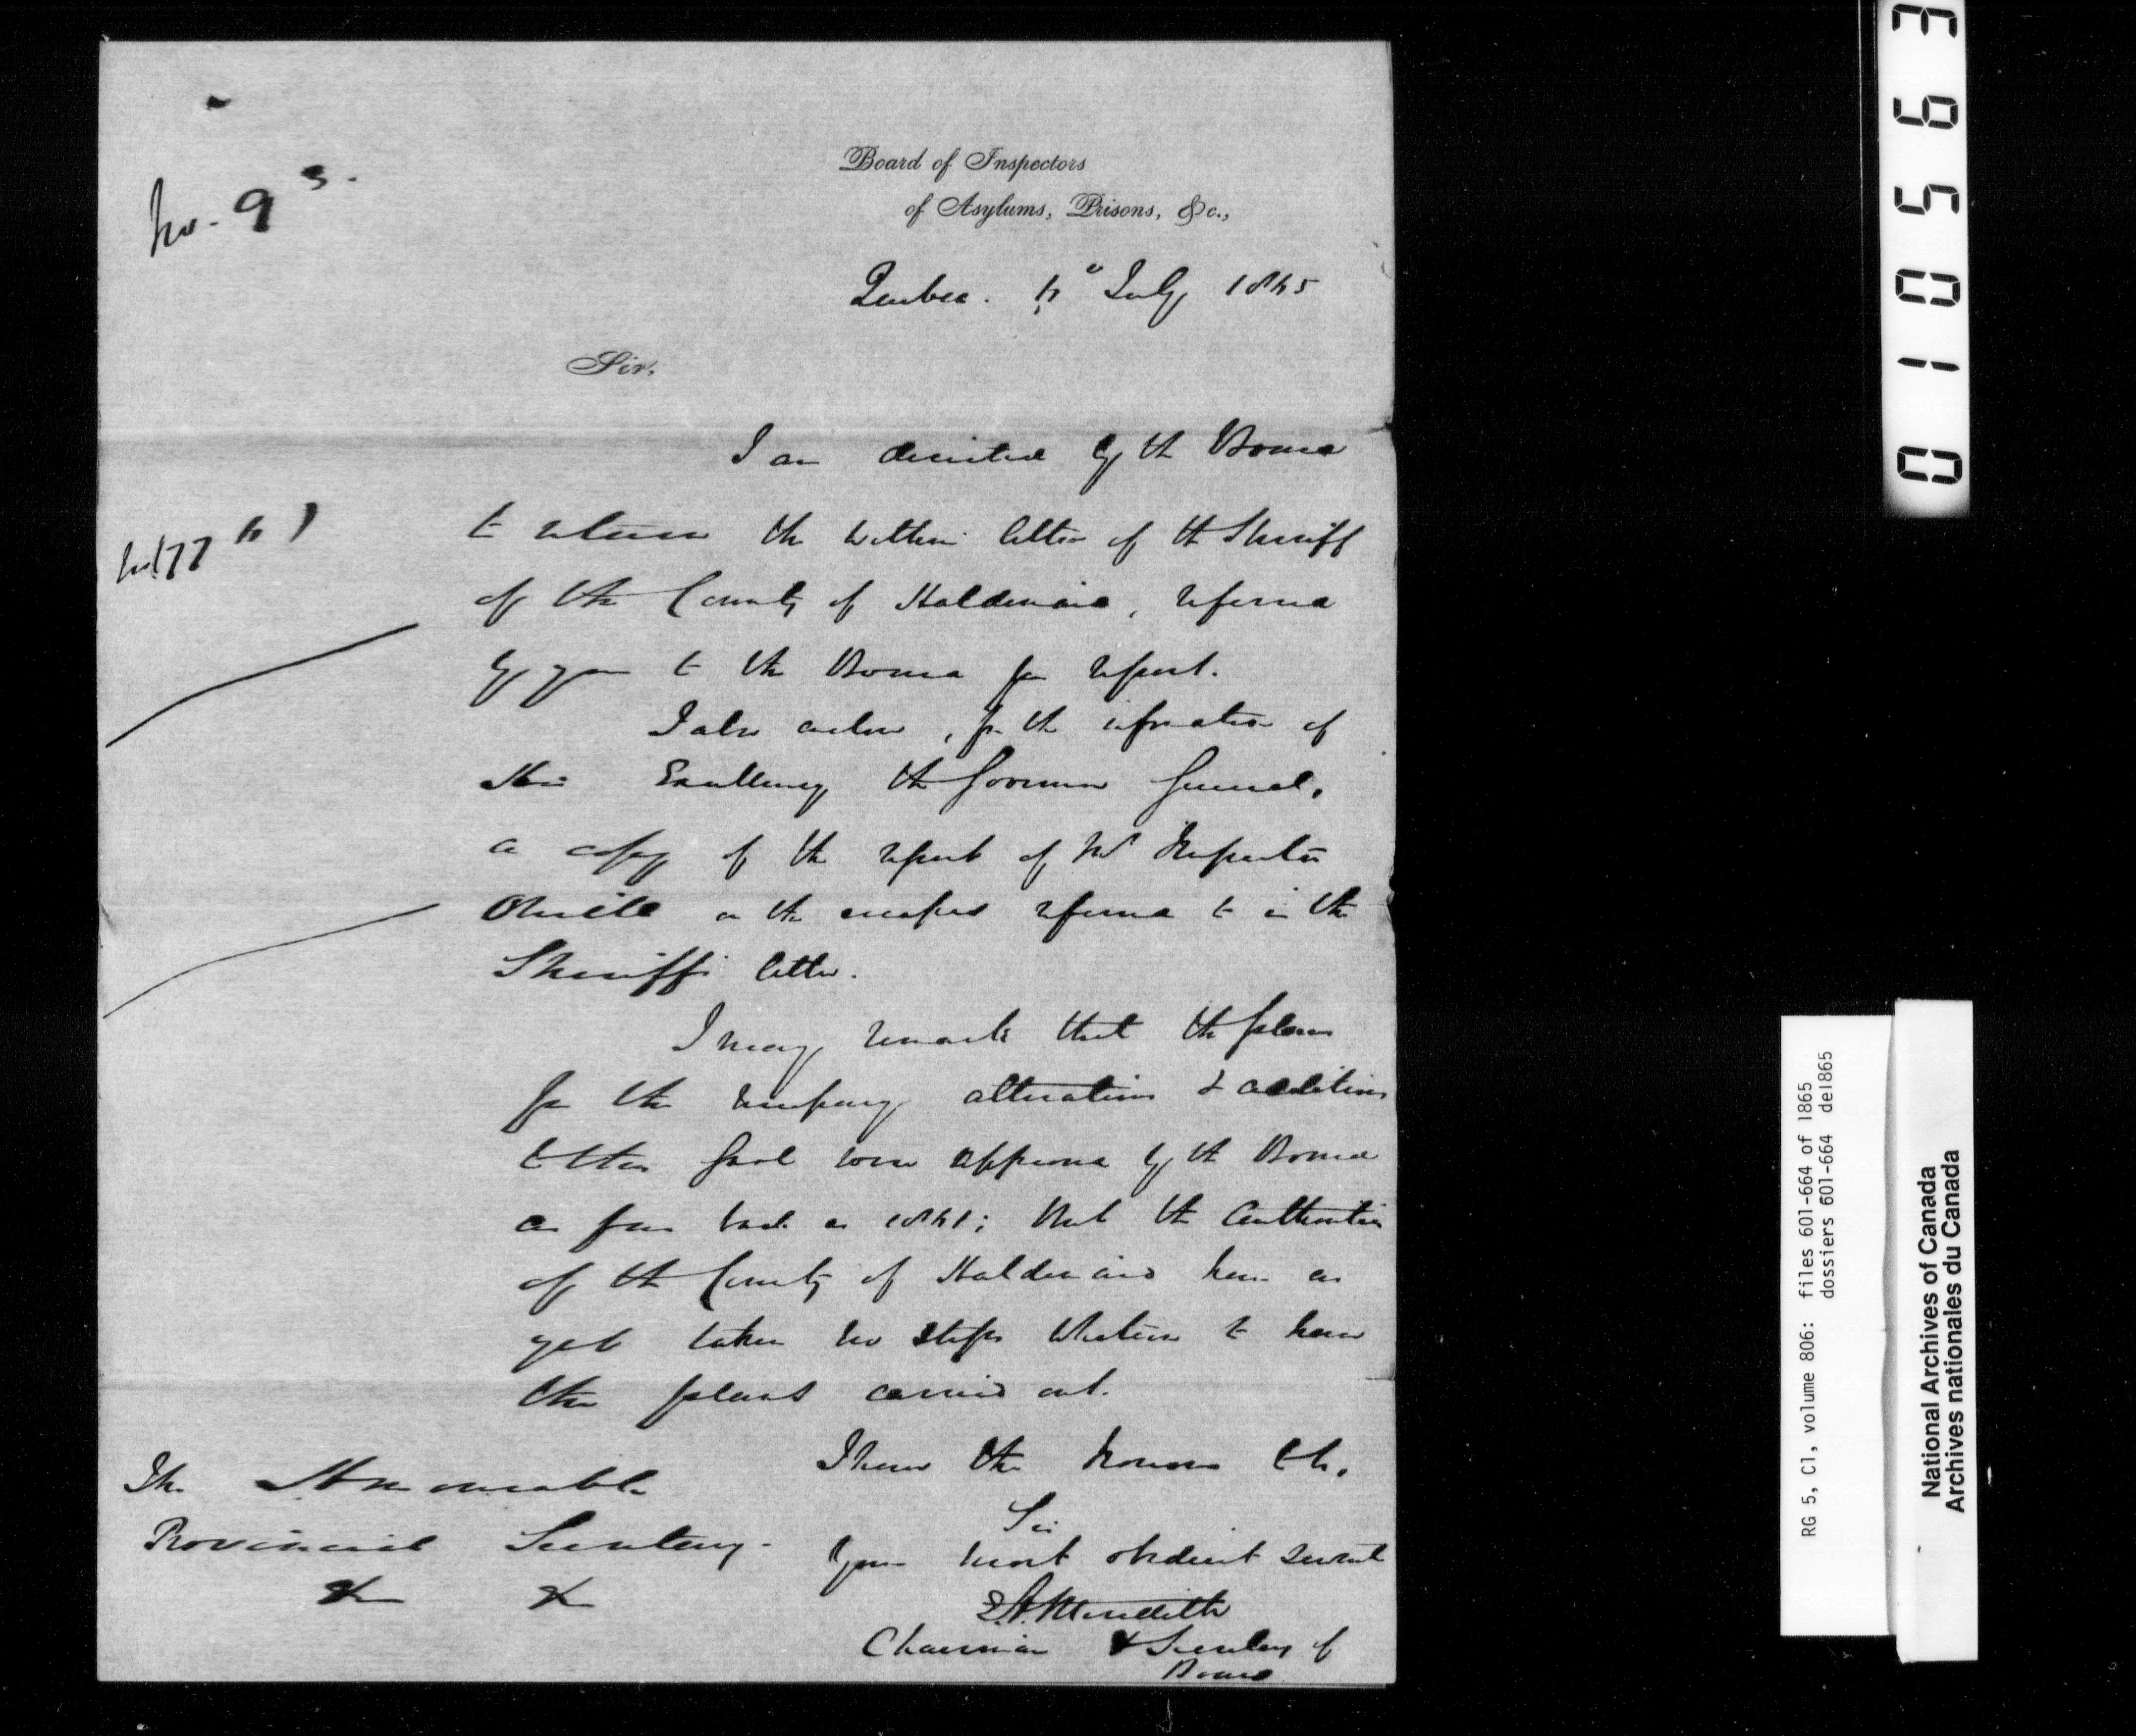 No. 93.
Board of Inspectors
of Asylums, Prisons, &c.,
Quebec. 6" July 1865
Sir,
I am directed by the Board
to return the within letter of the Sheriff
of the County of Haldimand, referred
by you to the Board for report.
I also enclose, for the information of
His Excellency the Governor General,
a copy of the report of Mr Inspector
on the escapes referred to in the
Sheriff's letter.
I may remark that the plans
for the necessary alterations & additions
to this Gaol were approved by the Board
as far back as 1861; that the authorities
of the County of Haldimand have as
yet taken no steps whatever to have
the plans carried out.
I have the honor to be,
Sir
Your most obedient servant
E.A. Meredith
Chairman & Secretary of
Board
The Honourable
Provincial Secretary.
&c &c
010563
RG 5, C1, volume 806: files 601-664 of 1865
dossiers 601-664 de1865
National Archives of Canada
Archives nationales du Canada